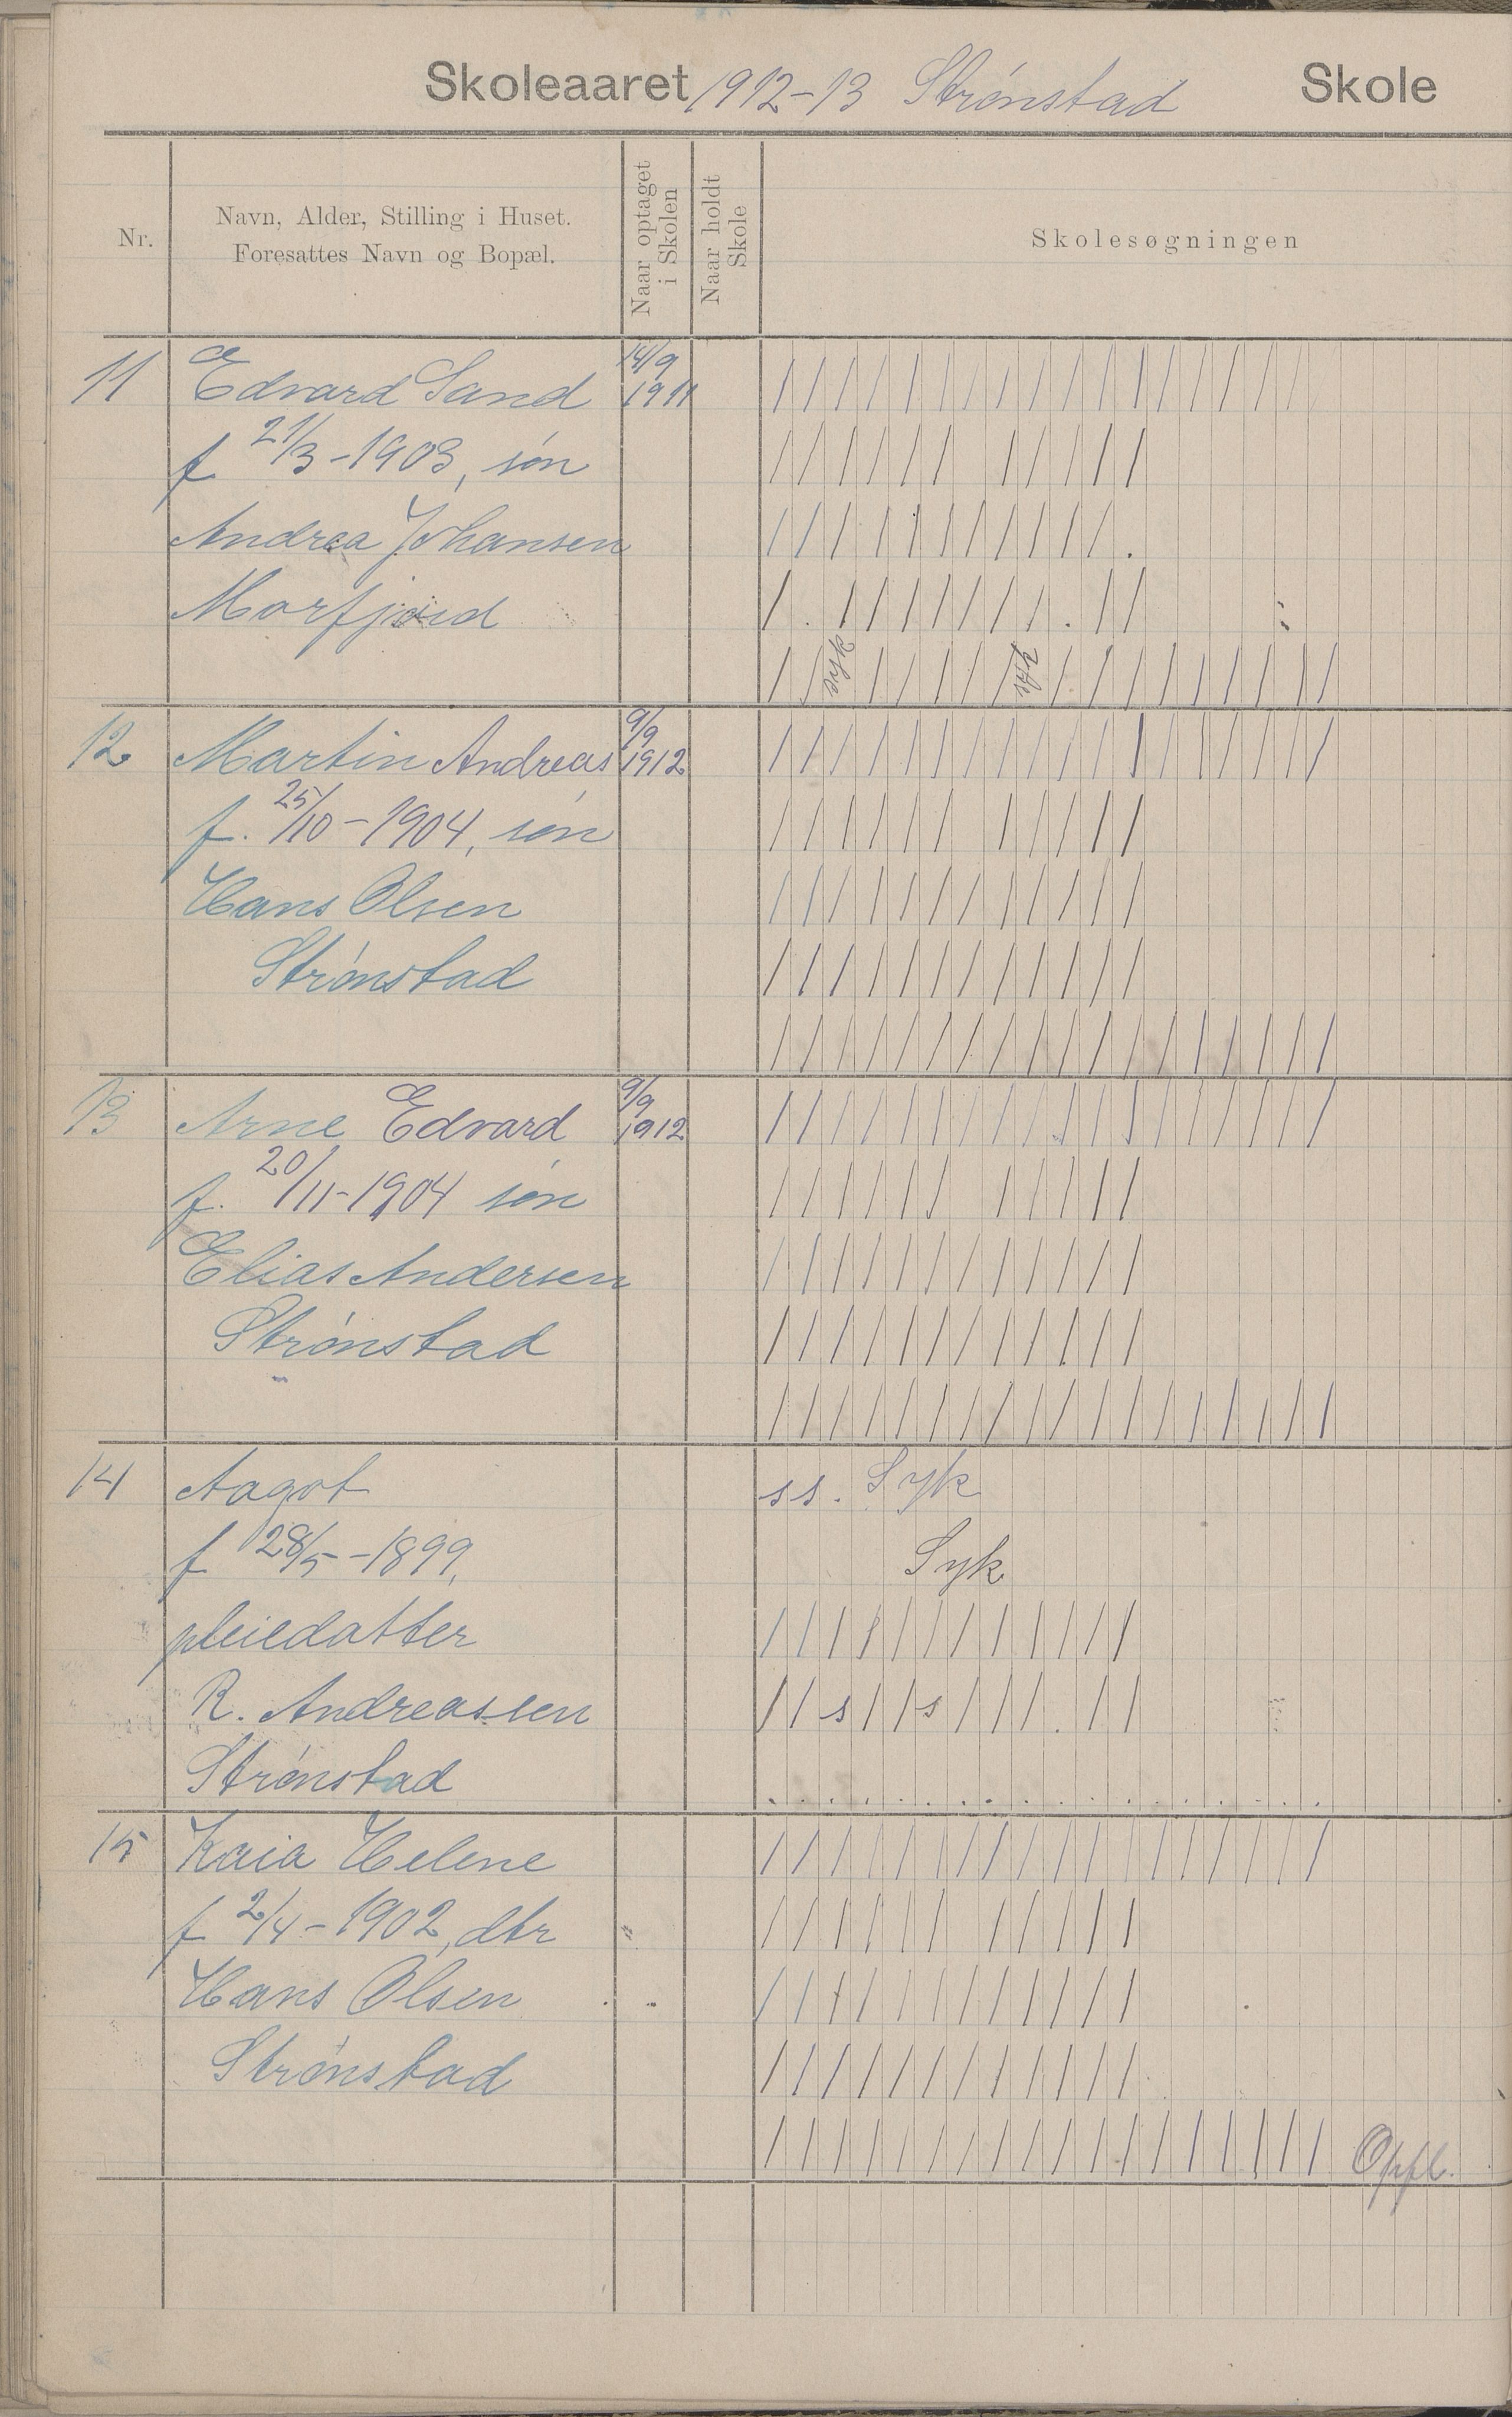 Skoleaaret 1912-13 Strónstad Skole
Nr.
Navn, Alder, Stilling i Huset.
Foresattes Navn og Bopæl.
Naar optaget
i Skolen
Naar holdt
Skole
Skolesøgningen
11 Edvard Sand 14/9 1911
f 21/3-1903, són
Andrea Johansen
Morfjord
12 Martin Andreas 9/9 1912
f. 25/10-1904, són
Hans Olsen
Strónstad
13 Arne Edvard 9/9 1912
f. 20/11-1904 són
Elias Andersen
Strónstad
14 Aagot ss. Syk
f 28/5-1899, Syk
pleiedatter
R. Andreassen s s
Strónstad
15 Kaia Helene
f 2/4-1902, dtr
Hans Olsen
Strónstad
Oppfl.